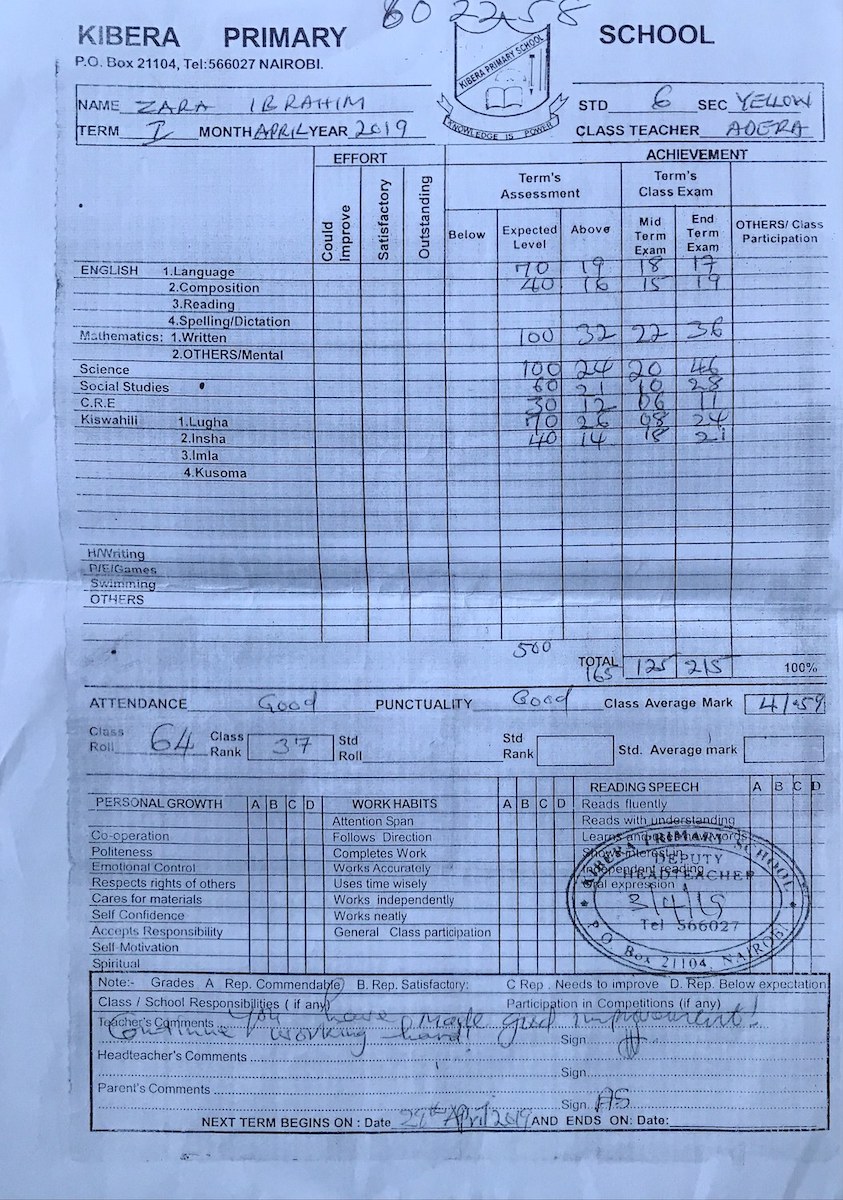 60 22-58
KIBERA PRIMARY SCHOOL
P.O. Box 21104, Tel:566027 NAIROBI.
KIBERA PRIMARY SCHOOL
KNOWLEDGE IS POWER
NAME ZARA IBRAHIM STD 6 SEC YELLOW
TERM I MONTH APRIL YEAR 2019 CLASS TEACHER ADERA
EFFORT ACHIEVEMENT
Could Improve Satisfactory Outstanding Term's Assessment Term's Class Exam
Below Expected Level Above Mid Term Exam End Term Exam OTHERS/ Class Participation
ENGLISH 1.Language 70 19 18 17
2.Composition 40 16 15 19
3.Reading
4.Spelling/Dictation
Mathematics: 1.Written 100 32 22 36
2.OTHERS/Mental
Science 100 24 20 46
Social Studies 60 21 10 28
C.R.E 30 12 06 11
Kiswahili 1.Lugha 70 26 08 24
2.Insha 40 14 18 21
3.Imla
4.Kusoma
H/Writing
P/E/Games
Swimming
OTHERS
500
TOTAL 165 125 215 100%
ATTENDANCE Good PUNCTUALITY Good Class Average Mark 41.59
Class Roll 64 Class Rank 37 Std Roll Std Rank Std. Average mark
PERSONAL GROWTH A B C D WORK HABITS A B C D READING SPEECH A B C D
Attention Span Reads fluently
Co-operation Follows Direction Reads with understanding
Politeness Completes Work
Emotional Control Works Accurately
Respects rights of others Uses time wisely
Cares for materials Works independently
Self Confidence Works neatly
Accepts Responsibility General Class participation
Self Motivation
Spiritual
KIBERA PRIMARY SCHOOL
DEPUTY
HEADTEACHER
3/4/19
Tel 566027
P.O. Box 21104, NAIROBI
Note:- Grades A Rep. Commendable) B. Rep. Satisfactory: C Rep. Needs to improve D. Rep. Below expectation
Class / School Responsibilities ( if any) Participation in Competitions (if any)
Teacher's Comments You have made good improvement!
Continue working hard! Sign
Headteacher's Comments
Sign
Parent's Comments
Sign AS
NEXT TERM BEGINS ON : Date 29th April 2019 AND ENDS ON: Date: